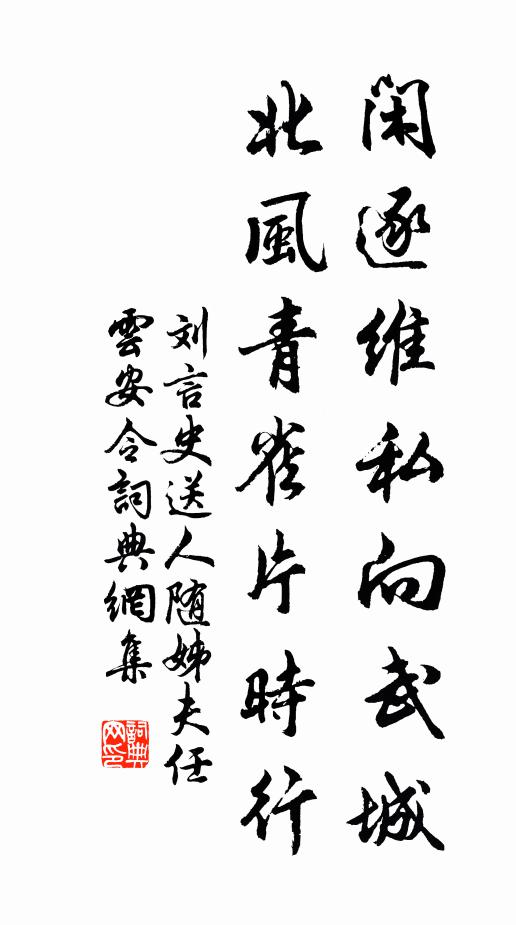 閑逐維私向武城
北風青雀片時行
刘言史送人随姊夫任
雲安令詞典網集
詞典
网印